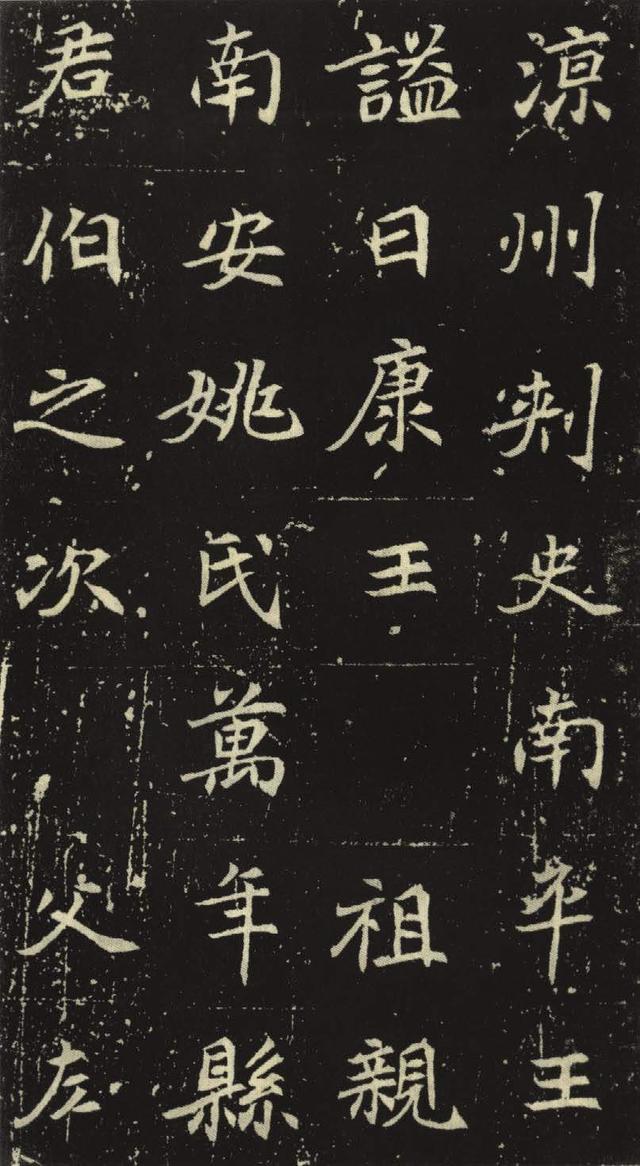 涼州刺史南平王
謚曰康王 祖親
南安姚氏萬年縣
君伯之次 父左